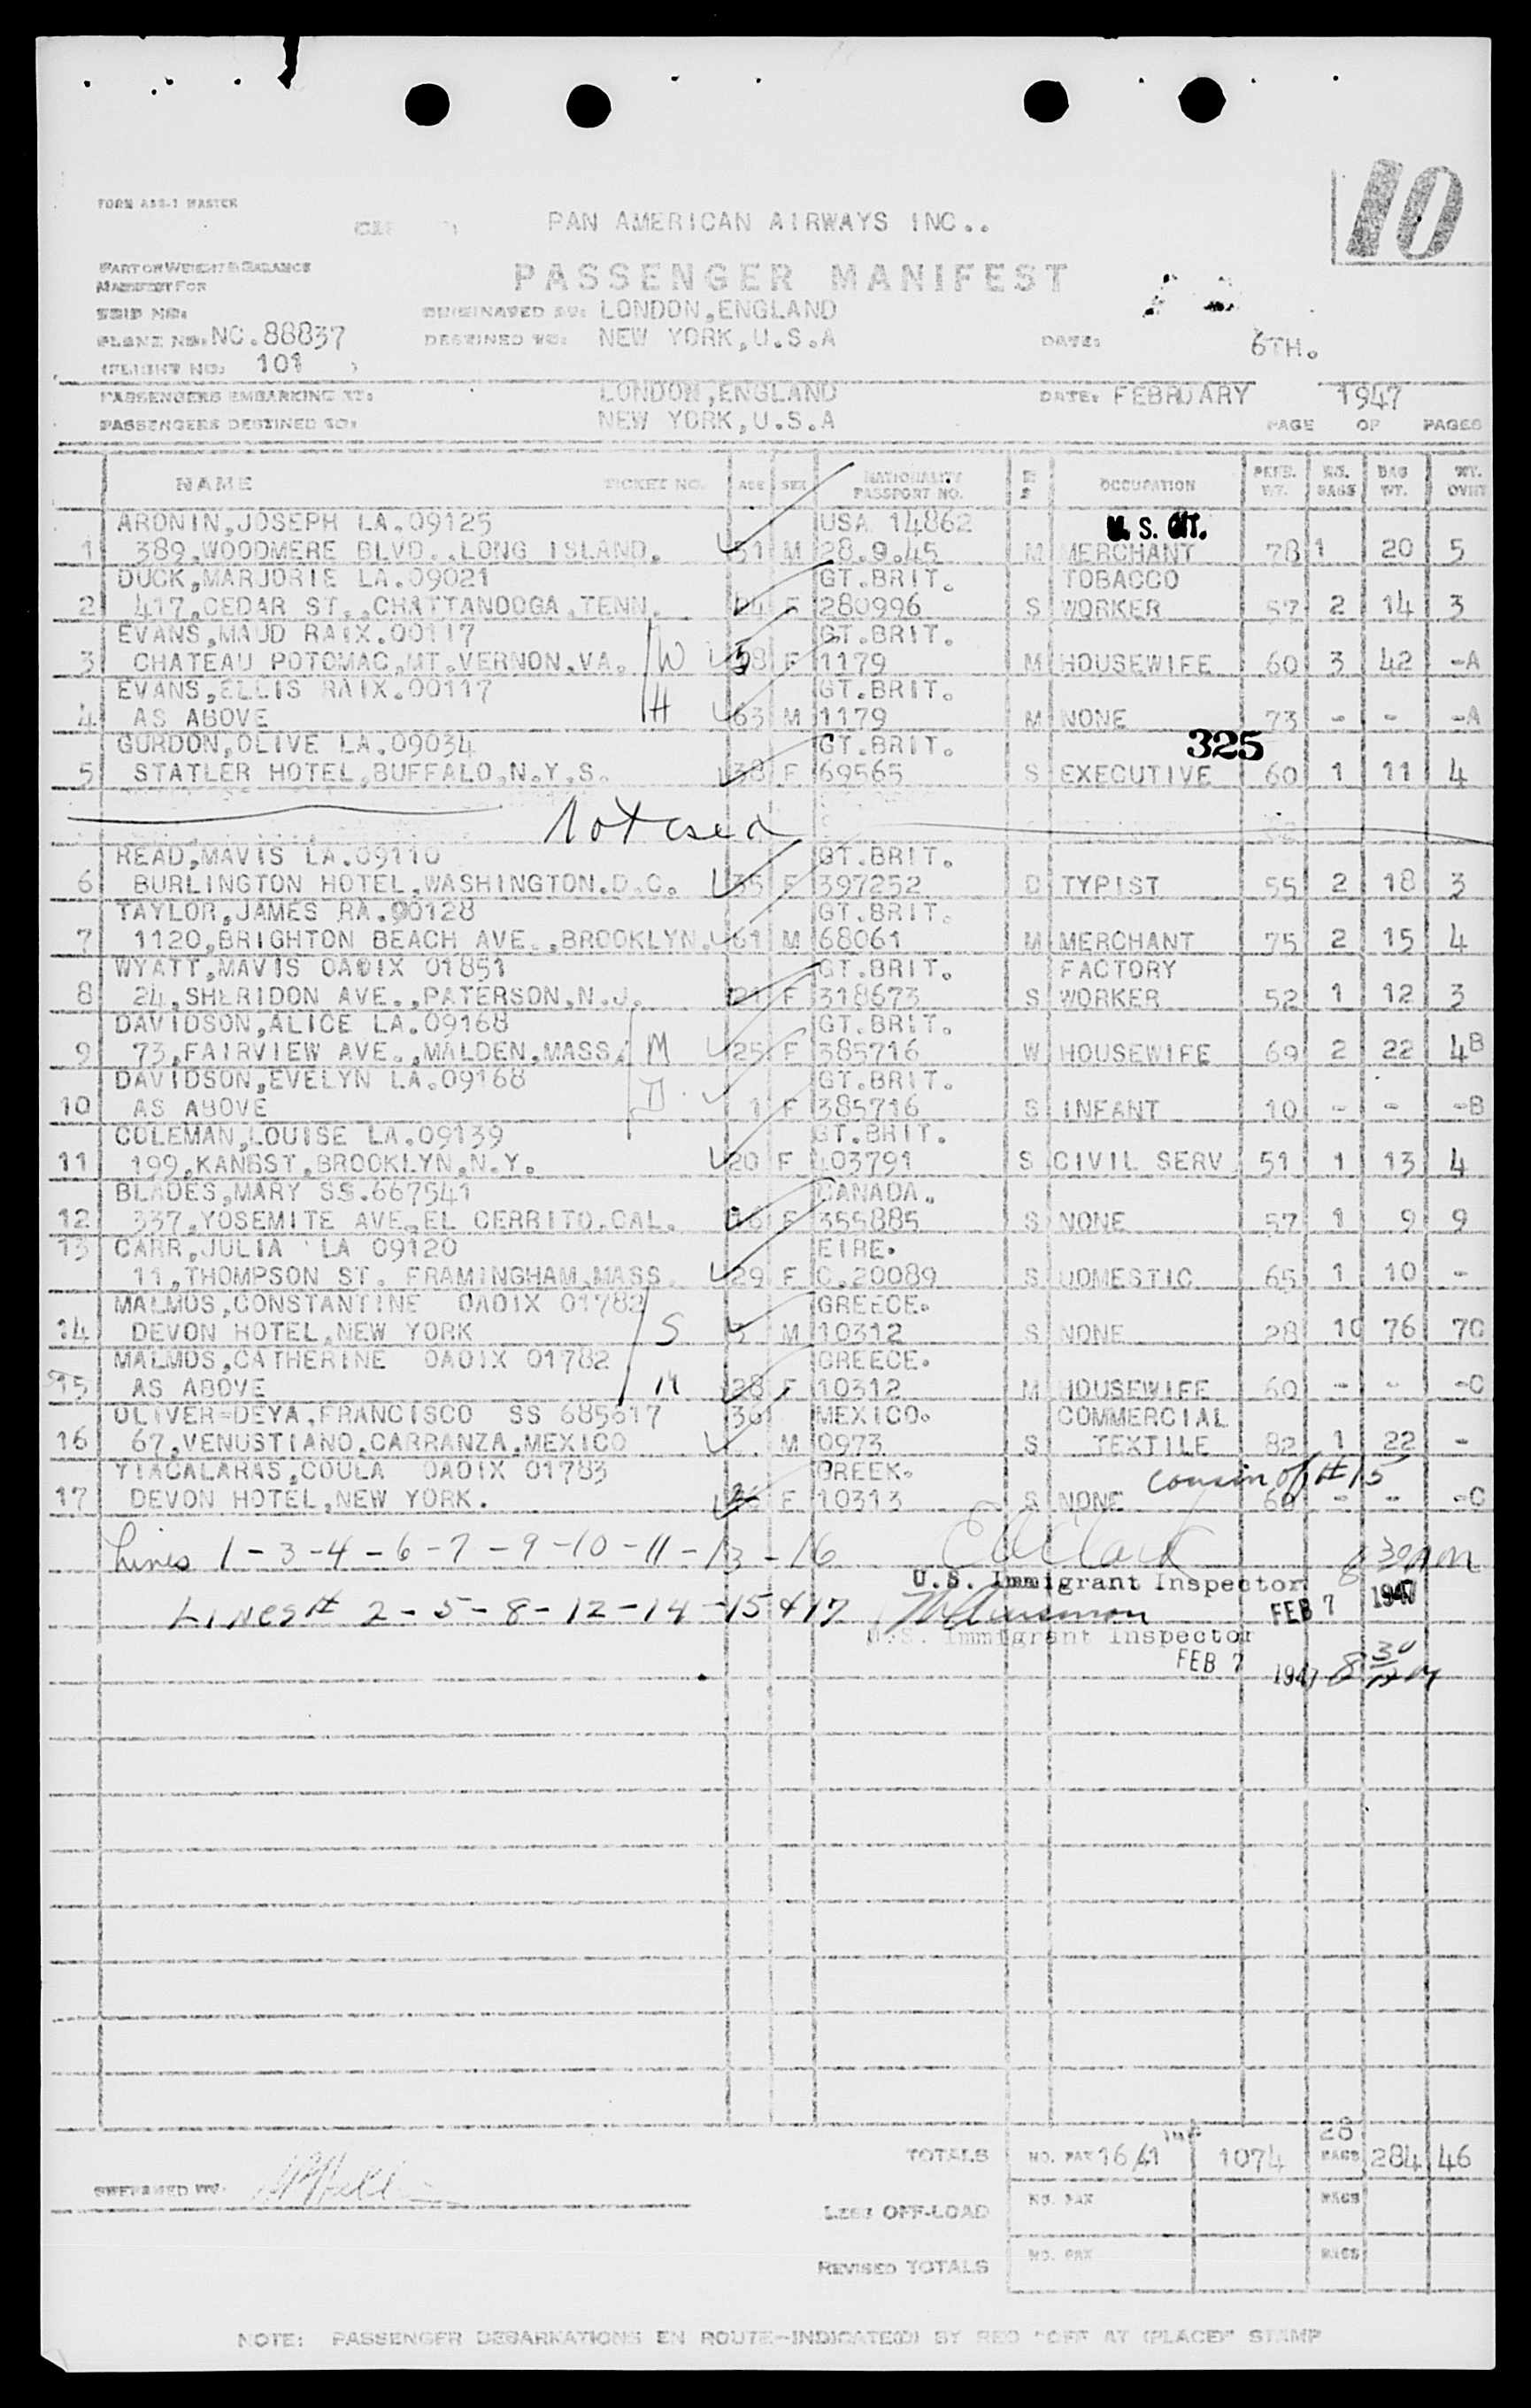 FORM ASS-1 MASTER
10
PAN AMERICAN AIRWAYS INC..
PART OR WEIGHT & BALANCE
MANIFEST FOR
PASSENGER MANIFEST
TRIP NO:
ORIGINATED AT: LONDON,ENGLAND
PLANE NO: NC.88837
DESTINED TO: NEW YORK,U.S.A
DATE: 6TH.
(FLIGHT NO: 101 )
PASSENGERS EMBARKING AT: LONDON,ENGLAND
DATE: FEBRUARY 1947
PASSENGERS DESTINED TO: NEW YORK,U.S.A
PAGE OF PAGES
NAME TICKET NO. AGE SEX NATIONALITY PASSPORT NO. M S OCCUPATION PERS. WT. NO. BAGS BAG WT. WT. OVHT
ARONIN,JOSEPH LA.09125 USA 14862 U.S. CIT.
1 389,WOODMERE BLVD.,LONG ISLAND. 51 M 28.9.45 M MERCHANT 78 1 20 5
DUCK,MARJORIE LA.09021 GT.BRIT. TOBACCO
2 417,CEDAR ST.,CHATTANOOGA,TENN. 24 F 280996 S WORKER 57 2 14 3
EVANS,MAUD RAIX.00117 GT.BRIT.
3 CHATEAU POTOMAC,MT.VERNON.VA. W 58 F 1179 M HOUSEWIFE 60 3 42 -A
EVANS,ELLIS RAIX.00117 GT.BRIT.
4 AS ABOVE H 63 M 1179 M NONE 73 - - -A
GURDON,OLIVE LA.09034 GT.BRIT. 325
5 STATLER HOTEL,BUFFALO,N.Y.S. 38 F 69565 S EXECUTIVE 60 1 11 4
Not used
READ,MAVIS LA.09110 GT.BRIT.
6 BURLINGTON HOTEL,WASHINGTON.D.C. 35 F 397252 D TYPIST 55 2 18 3
TAYLOR,JAMES RA.00128 GT.BRIT.
7 1120,BRIGHTON BEACH AVE.,BROOKLYN. 61 M 68061 M MERCHANT 75 2 15 4
WYATT,MAVIS OAOIX 01851 GT.BRIT. FACTORY
8 24,SHERIDON AVE.,PATERSON,N.J. 21 F 318673 S WORKER 52 1 12 3
DAVIDSON,ALICE LA.09168 GT.BRIT.
9 73,FAIRVIEW AVE.,MALDEN,MASS. M 25 F 385716 W HOUSEWIFE 69 2 22 4B
DAVIDSON,EVELYN LA.09168 GT.BRIT.
10 AS ABOVE D 1 F 385716 S INFANT 10 - - -B
COLEMAN,LOUISE LA.09139 GT.BRIT.
11 199,KANEST,BROOKLYN,N.Y. 20 F 403791 S CIVIL SERV 51 1 13 4
BLADES,MARY SS.667541 CANADA.
12 337,YOSEMITE AVE,EL CERRITO,CAL. F 355885 S NONE 57 1 9 9
13 CARR,JULIA LA 09120 EIRE.
11,THOMPSON ST. FRAMINGHAM,MASS. 29 F C.20089 S DOMESTIC 65 1 10 -
MALMOS,CONSTANTINE OAOIX 01782 GREECE.
14 DEVON HOTEL,NEW YORK S 3 M 10312 S NONE 28 10 76 7C
MALMOS,CATHERINE OAOIX 01782 GREECE.
15 AS ABOVE M 28 F 10312 M HOUSEWIFE 60 - - -C
OLIVER-DEYA,FRANCISCO SS 685617 36 MEXICO. COMMERCIAL
16 67,VENUSTIANO,CARRANZA,MEXICO M 0973 S TEXTILE 82 1 22 -
YIACALARAS,COULA OAOIX 01783 GREEK. cousin of #15
17 DEVON HOTEL,NEW YORK. F 10313 S NONE 60 - - -C
Lines 1-3-4-6-7-9-10-11-13-16 8 30 AM
U.S. Immigrant Inspector
FEB 7 1947
Lines# 2-5-8-12-14-15&17
U.S. Immigrant Inspector
FEB 7 1947 8 30 AM
TOTALS NO. PAX 16/1 INF 1074 28 BAGS 284 46
PREPARED BY:
LESS OFF-LOAD NO. PAX BAGS
REVISED TOTALS NO. PAX BAGS
NOTE: PASSENGER DEBARKATIONS EN ROUTE-INDICATE(D) BY RED "OFF AT (PLACE)" STAMP